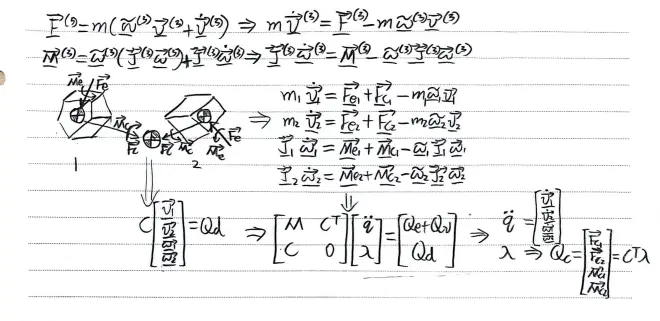 F⃗⁽ˢ⁾=m(ω̃⁽ˢ⁾v⃗⁽ˢ⁾+v̇⃗⁽ˢ⁾) ⇒ mv̇⃗⁽ˢ⁾=F⃗⁽ˢ⁾-mω̃⁽ˢ⁾v⃗⁽ˢ⁾
M⃗⁽ˢ⁾=ω̃⁽ˢ⁾(J⃗⁽ˢ⁾ω⃗⁽ˢ⁾)+J⃗⁽ˢ⁾ω̇⃗⁽ˢ⁾ ⇒ J⃗⁽ˢ⁾ω̇⃗⁽ˢ⁾=M⃗⁽ˢ⁾-ω̃⁽ˢ⁾J⃗⁽ˢ⁾ω⃗⁽ˢ⁾
M⃗e F⃗e M⃗c F⃗c F⃗c M⃗c F⃗e M⃗e
1 2
⇒ m₁v̇⃗₁=F⃗e₁+F⃗c₁-m₁ω̃₁v⃗₁
m₂v̇⃗₂=F⃗e₂+F⃗c₂-m₂ω̃₂v⃗₂
J⃗₁ω̇⃗₁=M⃗e₁+M⃗c₁-ω̃₁J⃗₁ω⃗₁
J⃗₂ω̇⃗₂=M⃗e₂+M⃗c₂-ω̃₂J⃗₂ω⃗₂
C[v̇⃗₁ v̇⃗₂ ω̇⃗₁ ω̇⃗₂]=Qd ⇒ [M Cᵀ C 0][q̈ λ]=[Qe+Qv Qd] ⇒ q̈=[v̇⃗₁ v̇⃗₂ ω̇⃗₁ ω̇⃗₂]
λ ⇒ Qc=[F⃗c₁ F⃗c₂ M⃗c₁ M⃗c₂]=Cᵀλ